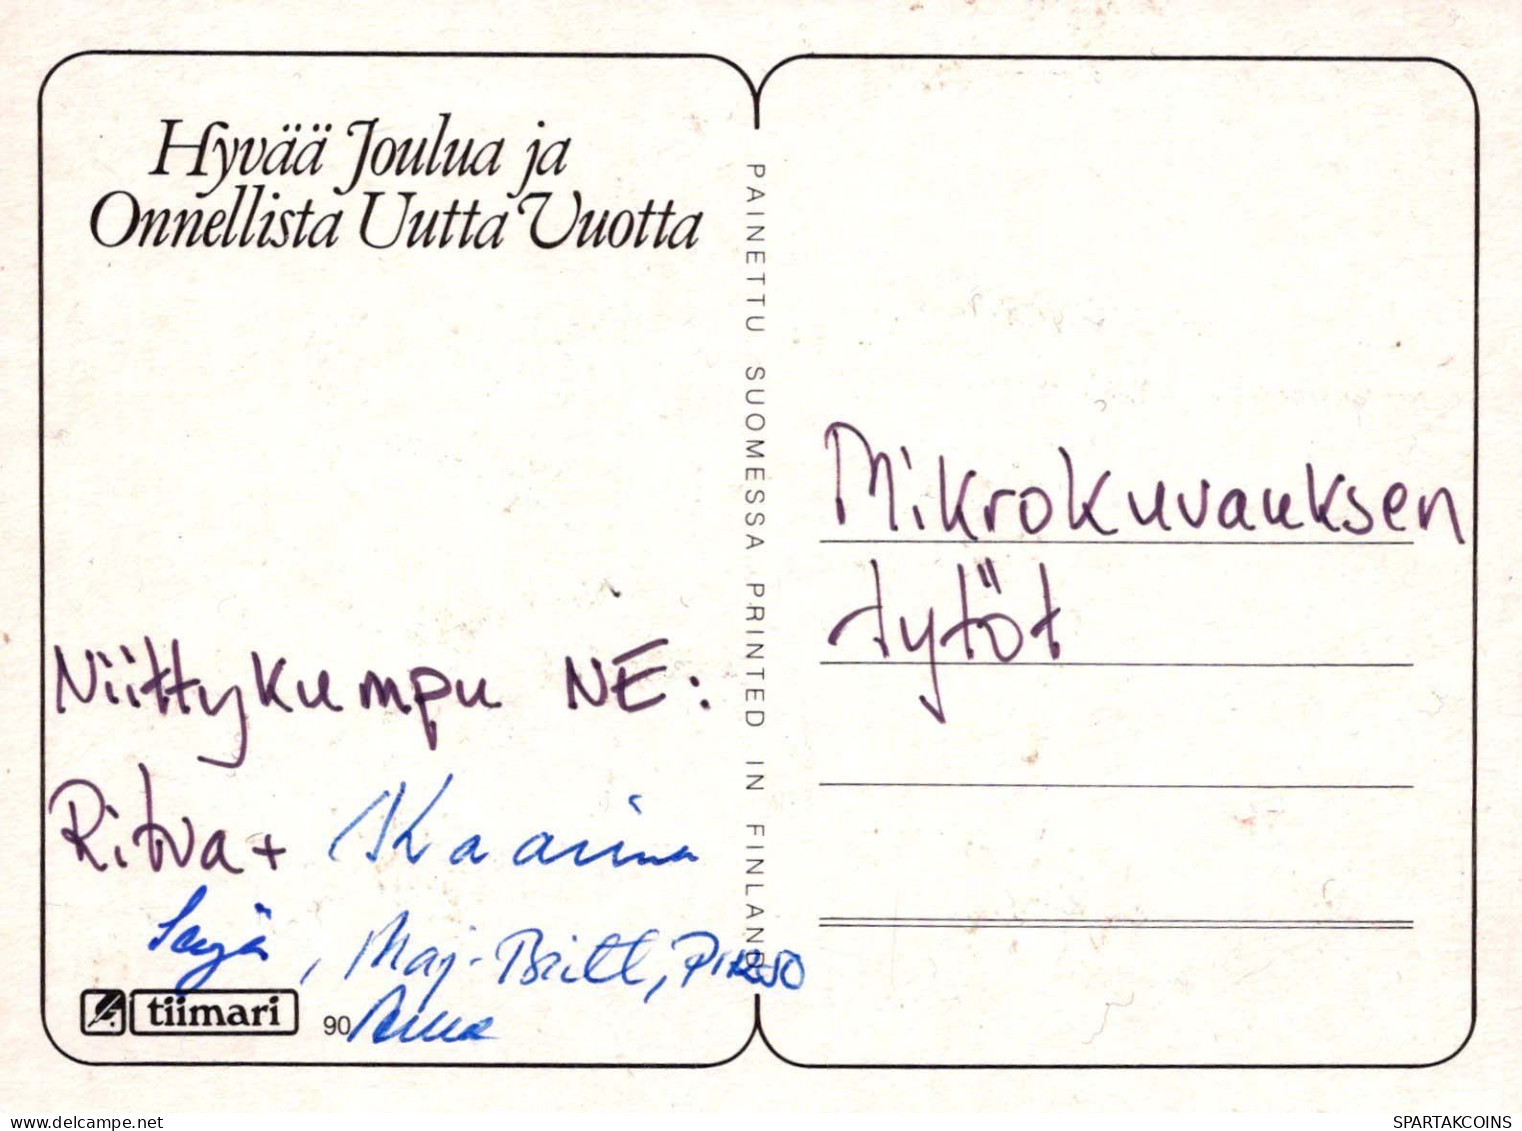 Hyvää Joulua ja
Onnellista Uutta Vuotta
Niittykumpu NE:
Ritva + Kaarina
Seija, Maj-Britt, PIRJO
Anna
tiimari
90
PAINETTU SUOMESSA PRINTED IN FINLAND
Mikrokuvauksen
tytöt
www.delcampe.net
SPARTAKCOINS